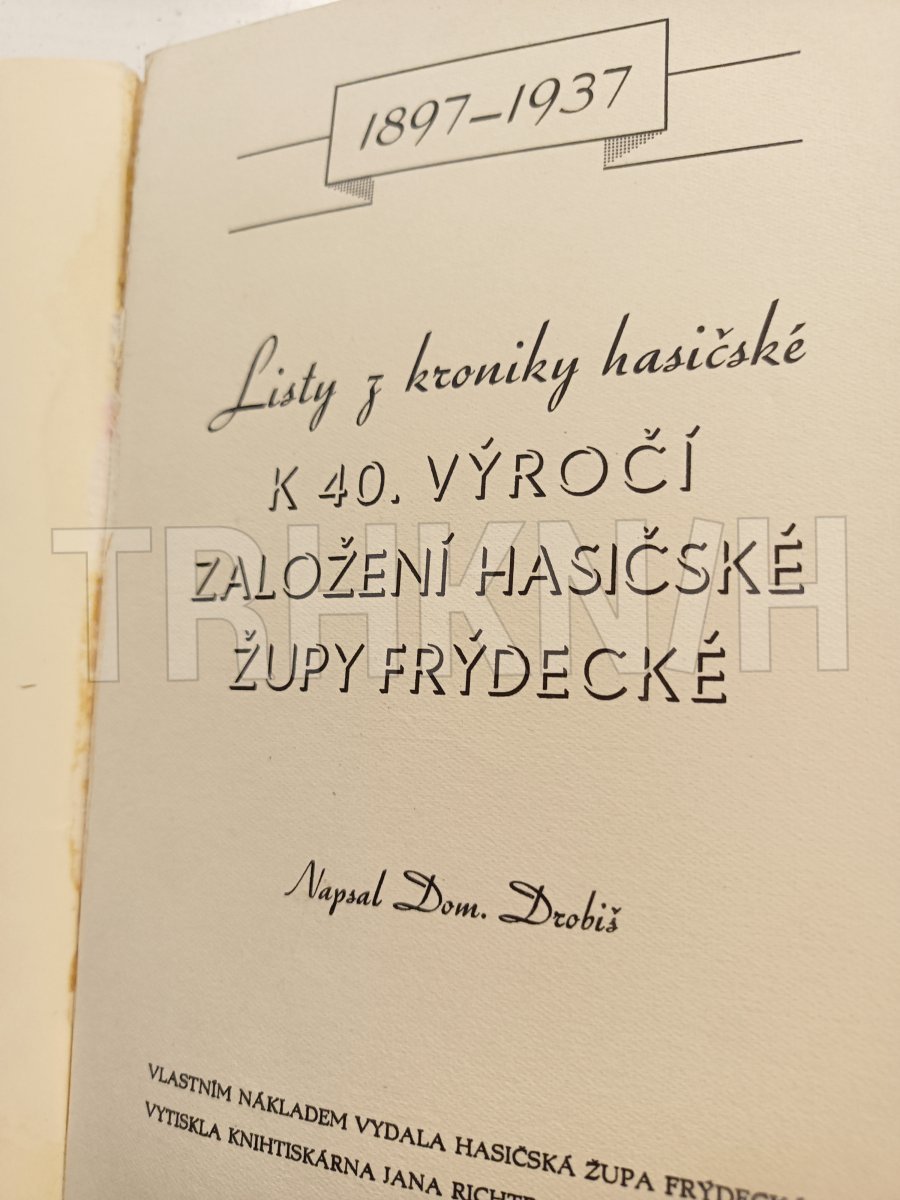 1897–1937
Listy z kroniky hasičské
K 40. VÝROČÍ
ZALOŽENÍ HASIČSKÉ
ŽUPY FRÝDECKÉ
TRHKNIH
Napsal Dom. Drobiš
VLASTNÍM NÁKLADEM VYDALA HASIČSKÁ ŽUPA
VYTISKLA KNIHTISKÁRNA JANA